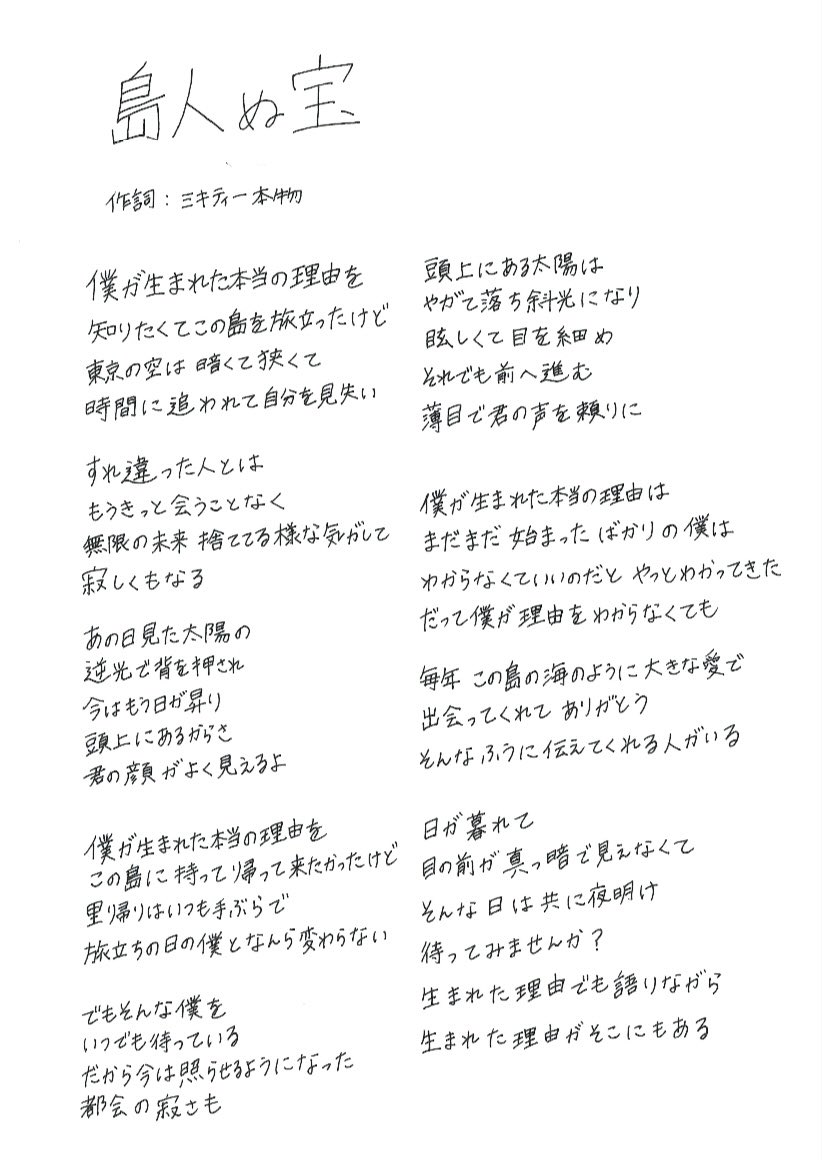 島人ぬ宝
作詞：ミキティー本物
僕が生まれた本当の理由を
知りたくてこの島を旅立ったけど
東京の空は 暗くて狭くて
時間に追われて自分を見失い
すれ違った人とは
もうきっと会うことなく
無限の未来 捨ててる様な気がして
寂しくもなる
あの日見た太陽の
逆光で背を押され
今はもう日が昇り
頭上にあるからさ
君の顔がよく見えるよ
僕が生まれた本当の理由を
この島に持って帰って来たかったけど
里帰りはいつも手ぶらで
旅立ちの日の僕となんら変わらない
でもそんな僕を
いつでも待っている
だから今は照らせるようになった
都会の寂さも
頭上にある太陽は
やがて落ち斜光になり
眩しくて目を細め
それでも前へ進む
薄目で君の声を頼りに
僕が生まれた本当の理由は
まだまだ始まったばかりの僕は
わからなくていいのだと やっとわかってきた
だって僕が理由をわからなくても
毎年 この島の海のように大きな愛で
出会ってくれて ありがとう
そんなふうに伝えてくれる人がいる
日が暮れて
目の前が真っ暗で見えなくて
そんな日は共に夜明け
待ってみませんか？
生まれた理由でも語りながら
生まれた理由がそこにもある